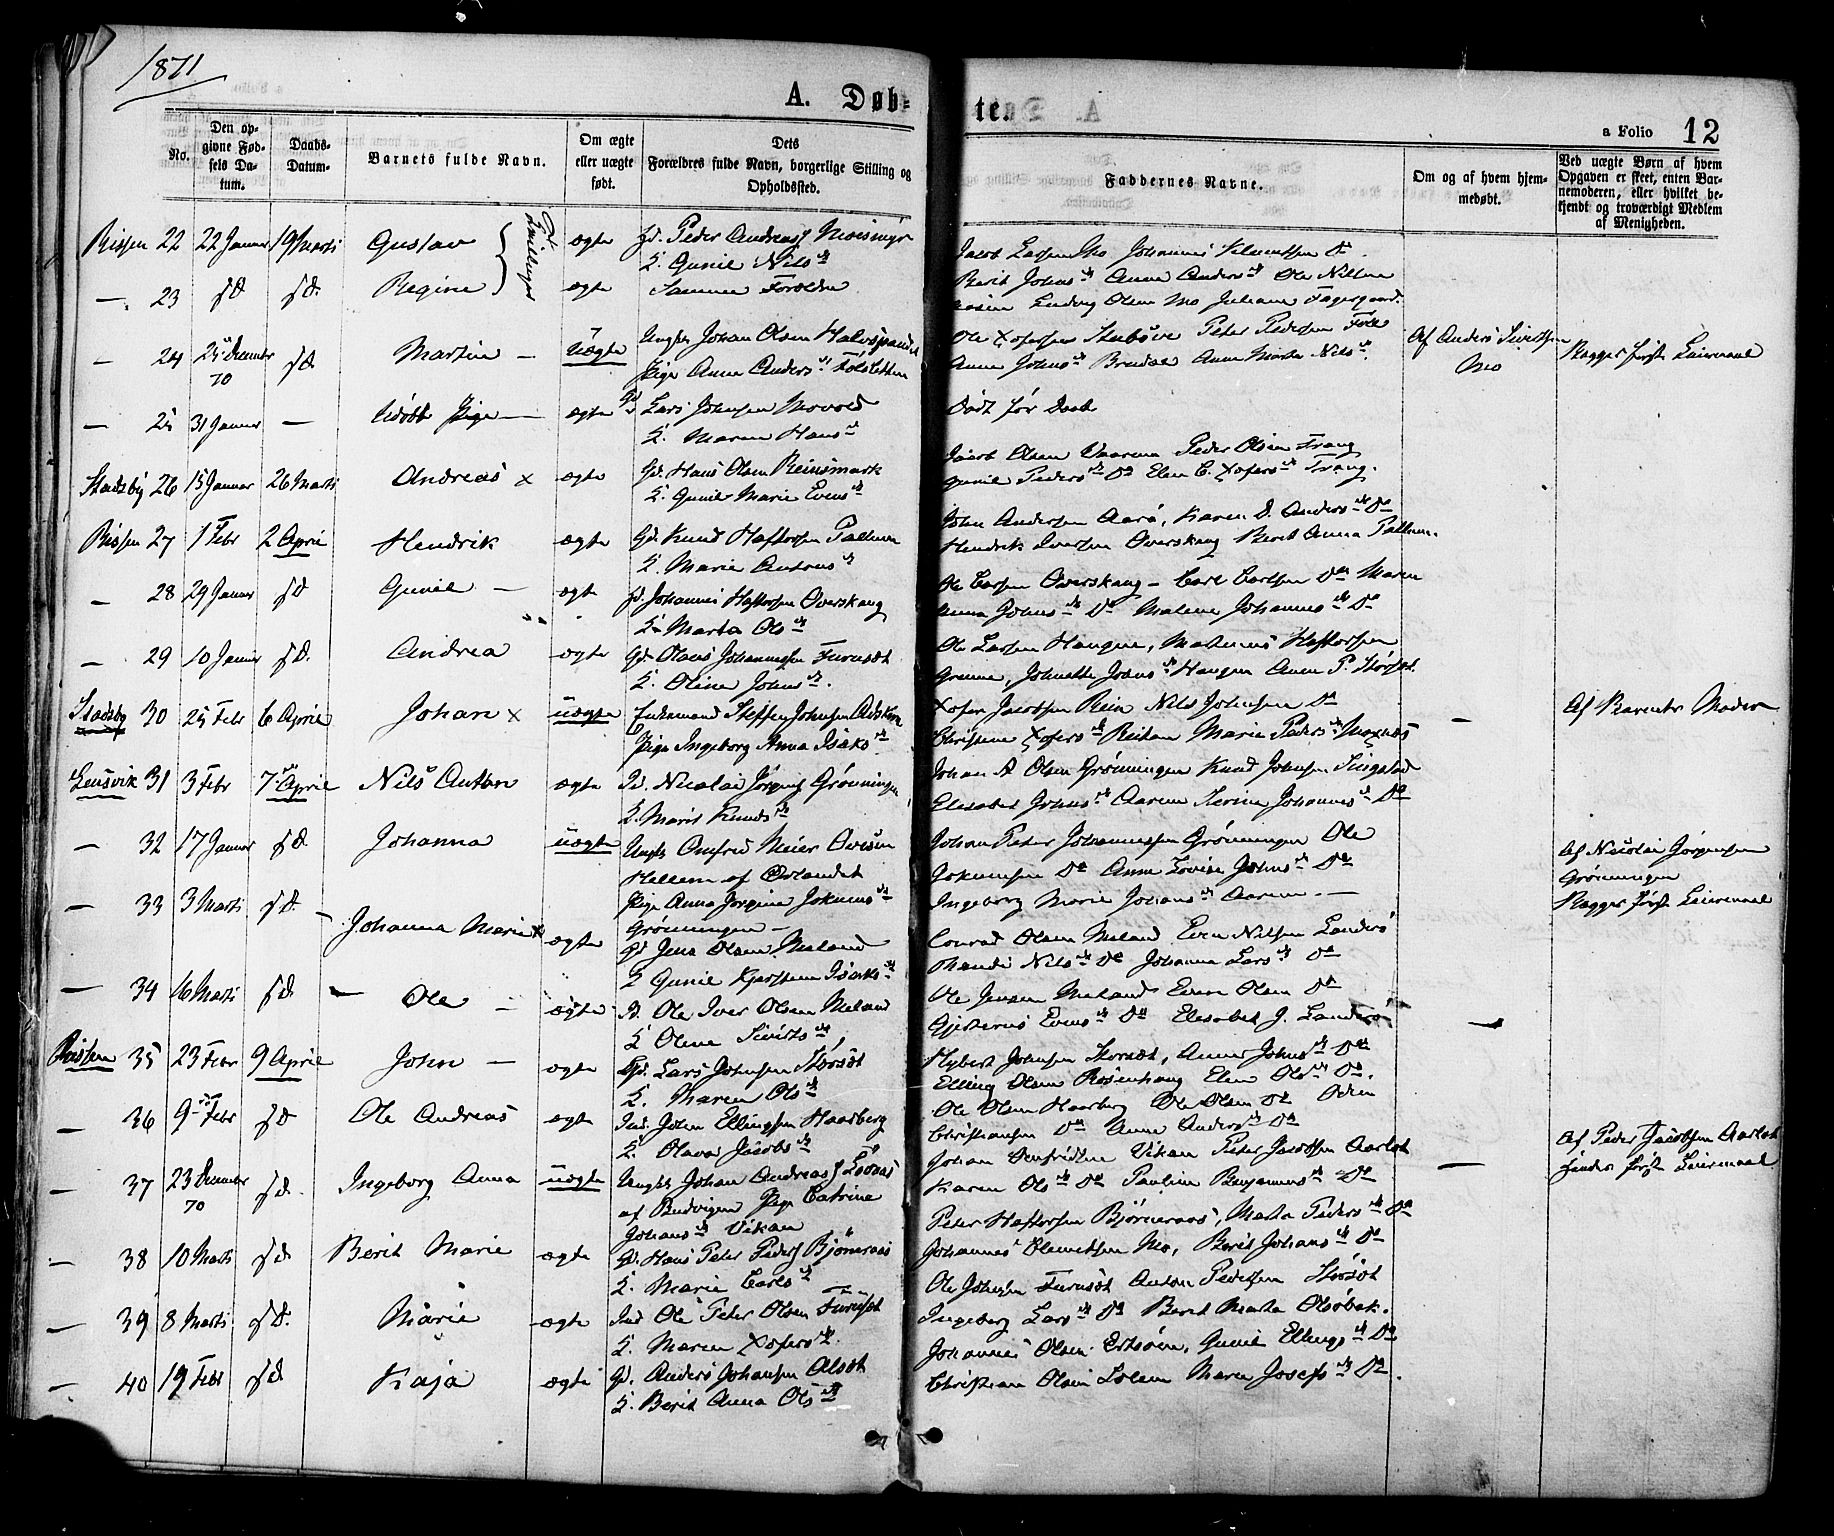 1871
A. Døb-
te.
a Folio 12
No.
Den op-
givne Fød-
sels Da-
tum.
Daabs-
Datum.
Barnets fulde Navn.
Om ægte
eller uægte
født.
Dets
Forældres fulde Navn, borgerlige Stilling og
Opholdssted.
Faddernes Navne.
Om og af hvem hjem-
medøbt.
Ved uægte Børn af hvem
Opgaven er skeet, enten Bar-
nemoderen, eller hvilket be-
kjendt og troværdigt Medlem
af Menigheden.
Rissen 22 22 Januar 19 Marts Gustav Tvillinger ægte Peder Andreas Moismyr
K. Gunil Nils
Jacob Larsen Mo Johannes Klemetsen Do
— 23 sD. sD. Regine ægte Samme Foreldre
Berit Johns Anne Anders Ole Nilsen
Ludvig Olsen Mo Juliane Fagergaard.
— 24 25 December 70 sD. Martin — uægte Ungk Johan Olsen
Pige Anne Anders
Ole Xofersen Stubsve Peter Pedersen
Anne Johns Anne Marta Nils
Af Anders Sivertsen
Mo
Begges første Leiermaal
— 25 31 Januar — Udøbt Pige — ægte Gd Lars Johnsen Movold
K. Maren Hans
Død før Daab
Stadsby 26 15 Januar 26 Marts Andreas x ægte Gd. Hans Olsen Reinsmark
K. Gunil Marie Evens
Olsen Vaarum Peder Olsen Trang
Gunil Peders Do Elen C. Xofers Trang.
Rissen 27 1 Febr 2 April Hendrik ægte Gd. Knud Haftorsen Pallum
K. Marie Antons
John Andersen Aarø, Karen D. Anders Do
Hendrik Iversen Overskaug Berit Anna Pallum.
— 28 29 Januar sD Gunil — ægte Johannes Haftorsen Overskaug
K. Marta Ols
Ole Larsen Overskaug — Carl Carlsen Do Maren
Anna Johns Do Malene Johannes Do
— 29 10 Januar sD. Andrea ægte Gd. Olaus Johannessen Furuset
K. Oline Johns.
Ole Larsen Haugen, Haftorsen
Johnette Johns Haugen Anne P. Storset.
Stadsby 30 25 Febr 6 April Johan x uægte Enkemand Steffen Johnsen
Pige Ingeborg Anna Isaks
Xofer Jacobsen Rein Nils Johnsen Do
Christine Xofers Reitan Marie Peders Moxnæs
—
Af Barnets Moder
Lensvik 31 3 Febr 7 April Nils Anton ægte Nicolai Jørgens Grønningen
K. Marit Knuds
Johan A Olsen Grønningen Knud Johnsen Singstad
Elesabet Johns Aarem Serine Johannes Do
— 32 17 Januar sD. Johanna uægte Ungk Meier Ovesen
Hellem af Ørlandet
Pige Anna Jorgine Jokums
Grønningen —
Johan Peter Johannessen Grønningen Ole
Jokumsen Do Anne Lovise Johns Do
Ingeborg Marie Johans Aarem —
Af Nicolai Jørgensen
Grønningen
Begges første Leiermaal
— 33 3 Marts sD. — Johanna Marie x ægte Gd Jens Olsen Meland
K Gunil Kjerstine Isaks
Conrad Olsen Meland Even Nilsen Landrø
Nils Do Johanna Lars Do
— 34 6 Marts sD. — Ole — ægte Ole Iver Olsen Meland
K Olina Siverts
Ole Jensen Meland Even Olsen Do
Gjertrus Evens Do Elesabet J. Landrø
—
Rissen 35 23 Febr 9 April John — ægte Gd. Lars Johnsen Storset
K. Maren Ols
Hybert Johnsen Storset, Anne Johns Do
Elling Olsen Rosenhaug Elen Ols Do.
— 36 9 Febr sD Ole Andreas ægte Ind. John Ellingsen Haarberg
K. Olava Jacobs
Ole Olsen Haarberg Ole Olsen Do Odin
Christiansen Do Anne Anders Do
— 37 23 December 70 sD. Ingeborg Anna uægte Ungk Johan Andreas
af Budvigen Pige Catrine
Johans Vikan
Johan Vikan Peter Jacobsen Aarlot
Karen Ols Do Pauline Benjamins Do
—
Af Peder Jacobsen Aarlot
første Leiermaal
— 38 10 Marts sD. Berit Marie ægte Gd. Hans Peter Peders Bjørneraas
K. Marie Carls
Peter Haftorsen Bjørneraas, Marta Peders Do
Johannes Klemetsen Mo, Berit Johans Do
— 39 8 Marts sD. Marie ægte Ind Ole Peter Olsen Furuset
K. Maren Xofers
Ole Johnsen Furuset Anton Pedersen Storset
Ingeborg Lars Do Berit Marta Olsøbak.
— 40 19 Febr sD Kaja ægte Gd. Anders Johansen Alset
K. Berit Anna Ols
Johannes Olsen Gunil Ellings Do
Christian Olsen Maren Josefs Do.